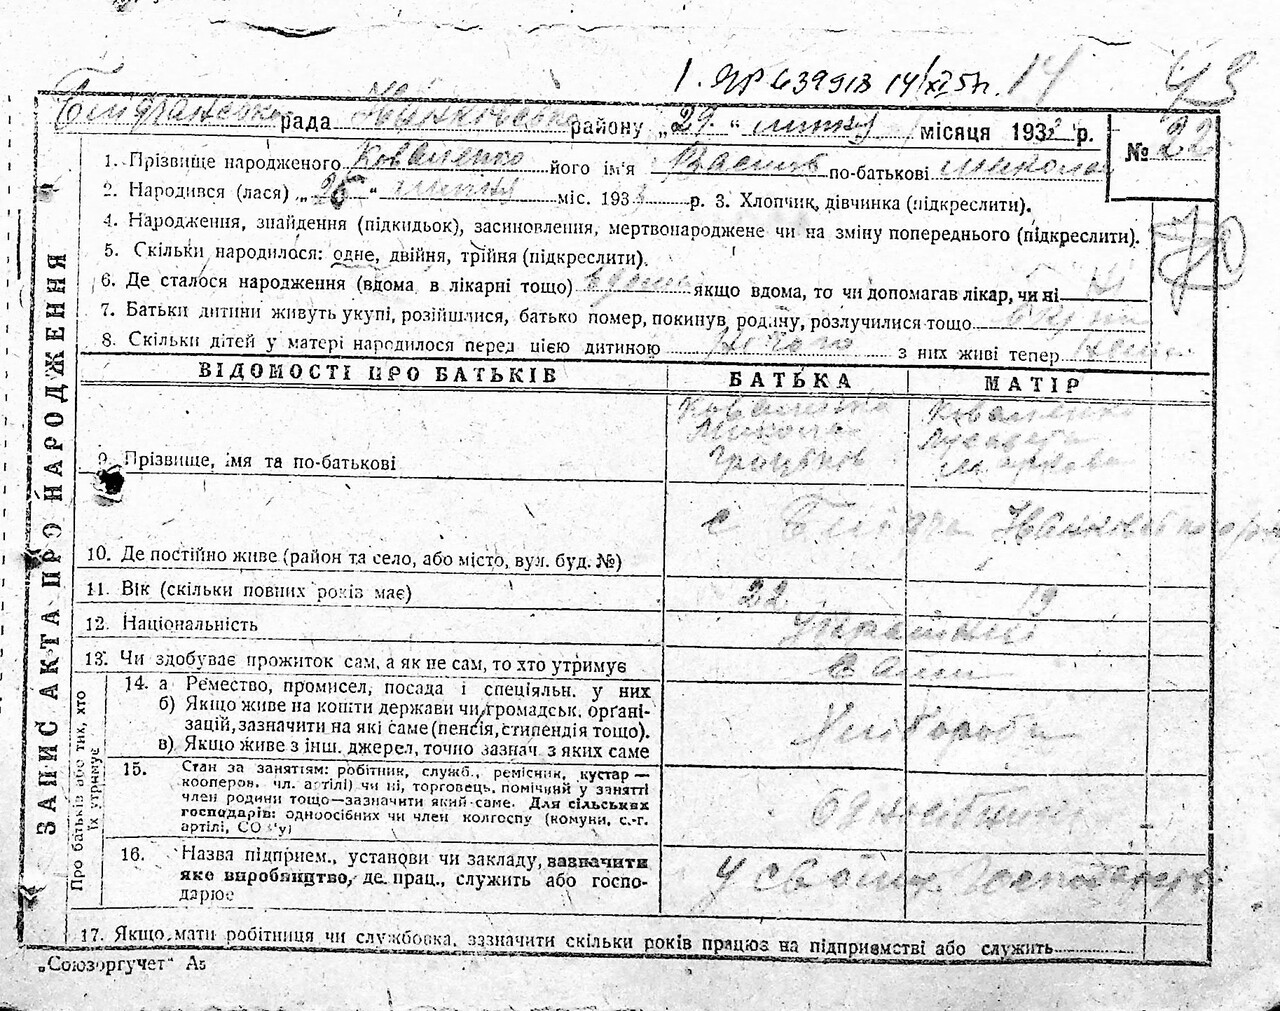 14 43
рада района „29“ липня місяця 193 р. № 22
1. Прізвище народженого Коваленко його ім'я Василь по-батькові Микола
2. Народився (лася) „25“ липня міс. 193 р. 3. Хлопчик, дівчинка (підкреслити).
4. Народження, знайдення (підкидьок), засиновлення, мертвонароджене чи на зміну попереднього (підкреслити).
5. Скільки народилося: одне, двійня, трійня (підкреслити).
6. Де сталося народження (вдома, в лікарні тощо) вдома якщо вдома, то чи допомагав лікар, чи ні
7. Батьки дитини живуть укупі, розійшлися, батько помер, покинув родину, розлучилися тощо вкупі
8. Скільки дітей у матері народилося перед цією дитиною з них живі тепер
ЗАПИС АКТА ПРО НАРОДЖЕННЯ
ВІДОМОСТІ ПРО БАТЬКІВ БАТЬКА МАТІР
Коваленко Коваленко
Микола
9. Прізвище, імя та по-батькові
с
10. Де постійно живе (район та село, або місто, вул. буд. №)
11. Вік (скільки повних років має) 22 19
12. Національність
13. Чи здобуває прожиток сам, а як не сам, то хто утримує сами
Про батьків або тих, хто їх утримує
14. а Ремество, промисел, посада і спеціяльн. у них
б) Якщо живе на кошти держави чи громадськ. орґані-
зацій, зазначити на які саме (пенсія, стипендія тощо).
в) Якщо живе з інш. джерел, точно зазнач. з яких саме
Хлібороби
15. Стан за занятіям: робітник, служб., ремісник, кустар—
кооперов. чл. артілі) чи ні, торговець, помічний у занятті
член родини тощо—зазначити який-саме. Для сільських
господарів: одноосібних чи член колгоспу (комуни, с.-г.
артілі, СО
Одноосібники
16. Назва підприєм., установи чи закладу, вазначити
яке виробництво, де прац., служить або госпо-
дарює
у своїм господарстві
17. Якщо мати робітниця чи службовка, зазначити скільки років працює на підприємстві або служить
„Союзоргучет“ А5